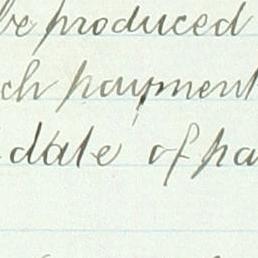 be produced
ch payment
date of pa